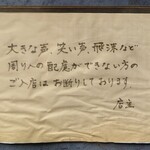 大きな声、笑い声、飛沫など
周りへの配慮ができない方の
ご入店はお断りしております。
店主